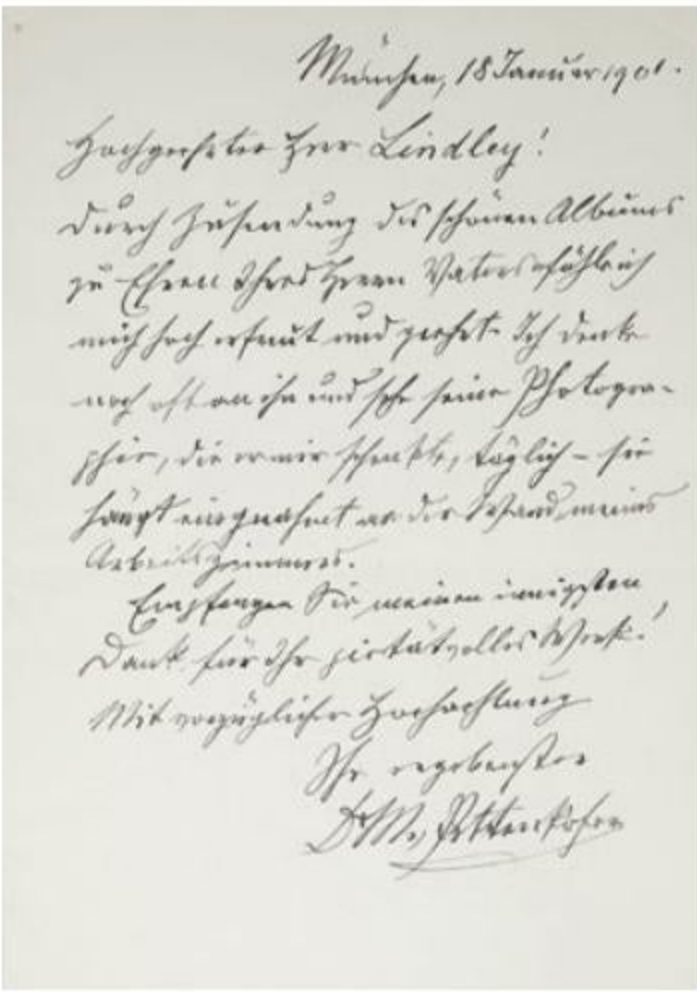 München, 18 Januar 1901.
Hochgeehrter Herr Lindley!
Durch Zusendung des schönen Albums
zu Ehren Ihres Herrn Vaters fühle ich
mich hoch erfreut und geehrt. Ich denke
noch oft an ihn und sehe seine Photogra-
phie, die er mir schenkte, täglich – sie
hängt eingerahmt an der Wand meines
Arbeitszimmers.
Empfangen Sie meinen innigsten
Dank für Ihr pietätvolles Werk!
Mit vorzüglicher Hochachtung
Ihr ergebenster
Dr M. v. Pettenkofer